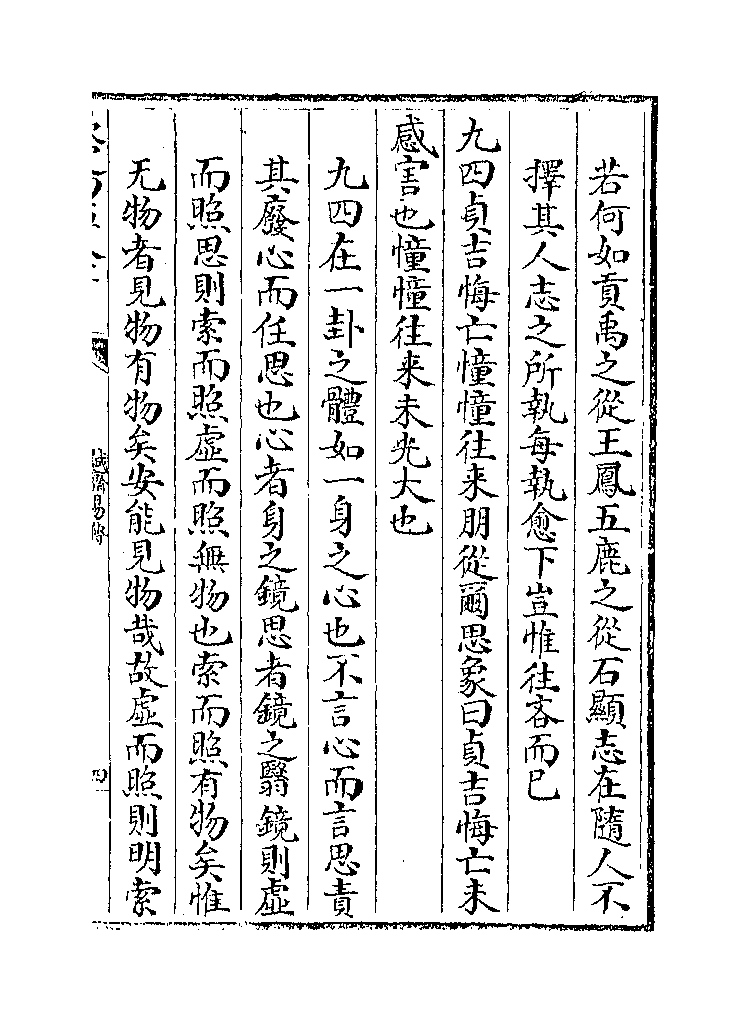 若何如貢禹之從王鳳五鹿之從石顯志在隨人不
擇其人志之所執每執愈下豈惟往吝而已
九四貞吉悔亡憧憧往来朋從爾思象曰貞吉悔亡未
感害也憧憧往来未光大也
九四在一卦之體如一身之心也不言心而言思責
其廢心而任思也心者身之鏡思者鏡之翳鏡則虚
而照思則索而照虚而照無物也索而照有物矣惟
无物者見物有物矣安能見物哉故虚而照則明索
誠齋易傳
四